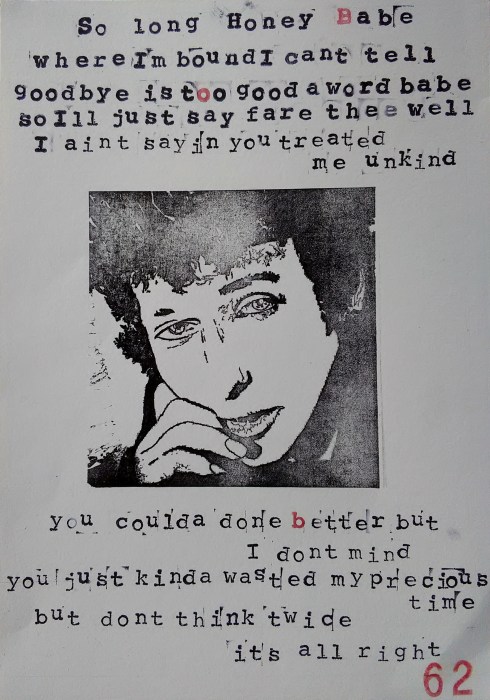 So long Honey Babe
where I'm bound I cant tell
goodbye is too good a word babe
so Ill just say fare thee well
I aint sayin you treated
me unkind
you coulda done better but
I dont mind
you just kinda wasted my precious
time
but dont think twice
it's all right
62